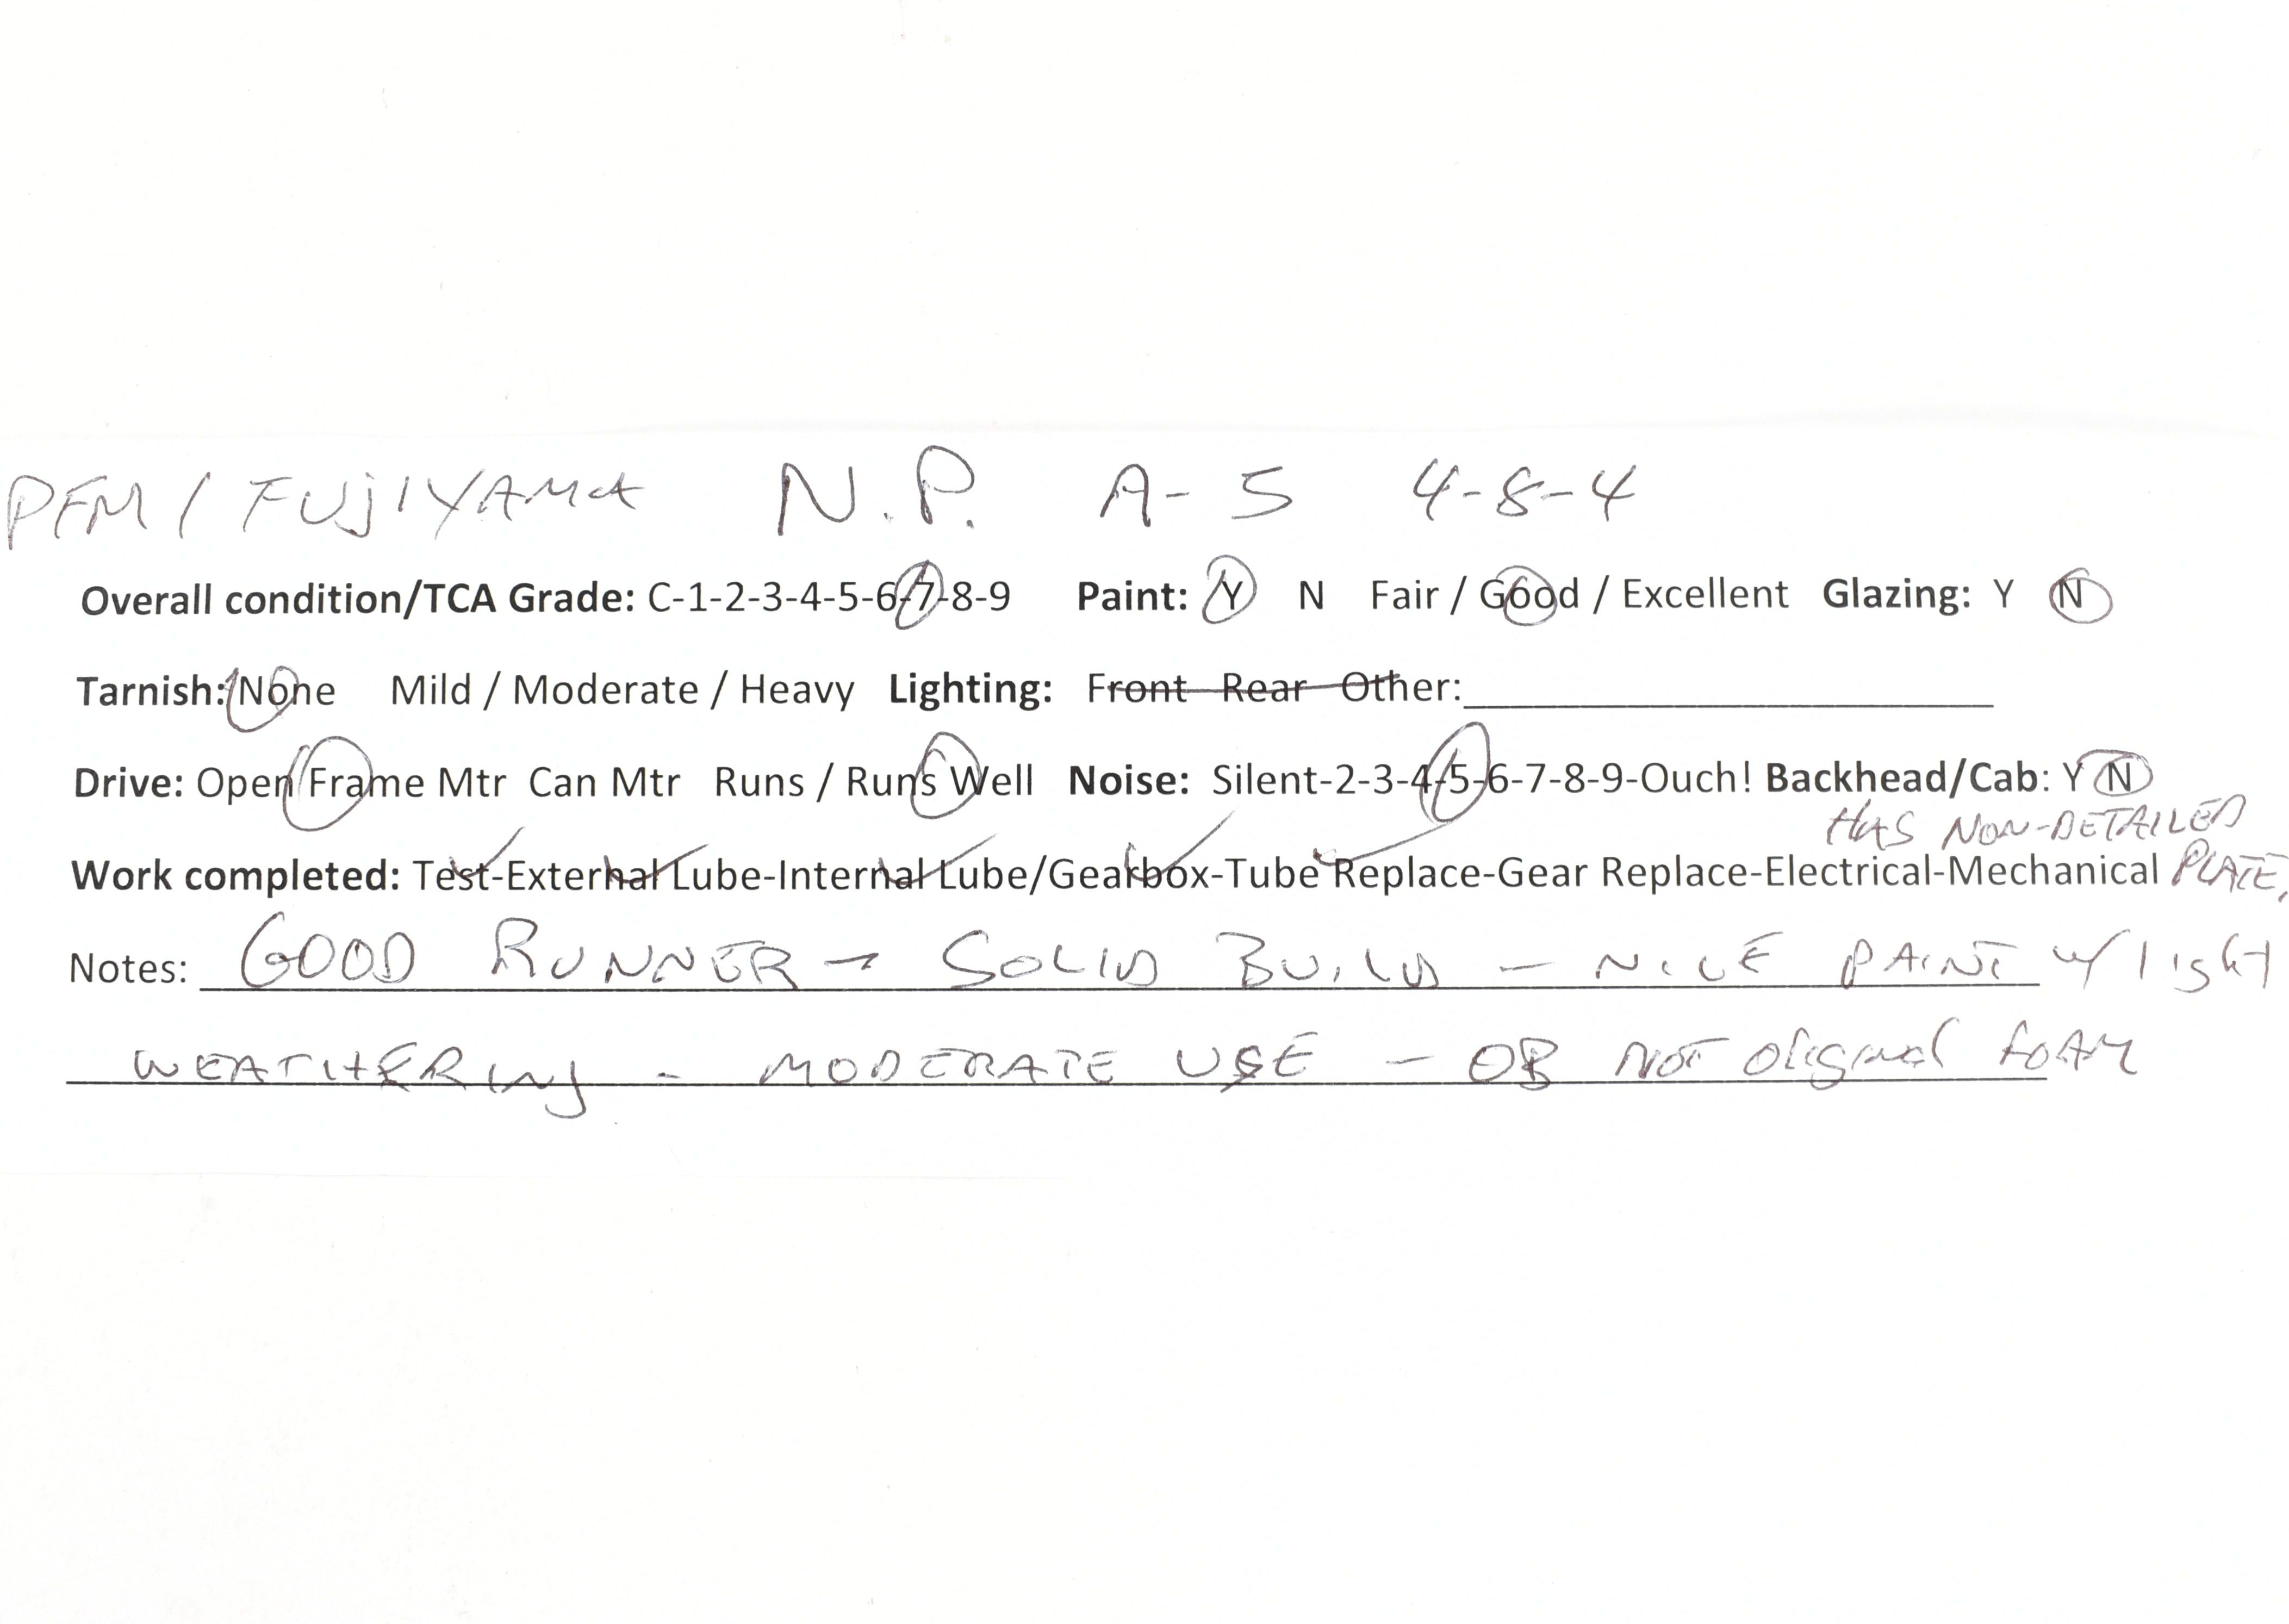 PFM / FUJIYAMA N.P. A-5 4-8-4
Overall condition/TCA Grade: C-1-2-3-4-5-6-7-8-9 Paint: Y N Fair / Good / Excellent Glazing: Y N
Tarnish: None Mild / Moderate / Heavy Lighting: Front Rear Other:
Drive: Open Frame Mtr Can Mtr Runs / Runs Well Noise: Silent-2-3-4-5-6-7-8-9-Ouch! Backhead/Cab: Y N
HAS NON-DETAILED
Work completed: Test-External Lube-Internal Lube/Gearbox-Tube Replace-Gear Replace-Electrical-Mechanical PLATE,
Notes: GOOD RUNNER - SOLID BUILD - NICE PAINT w/ light
WEATHERING - MODERATE USE - OB NOT Original FOAM